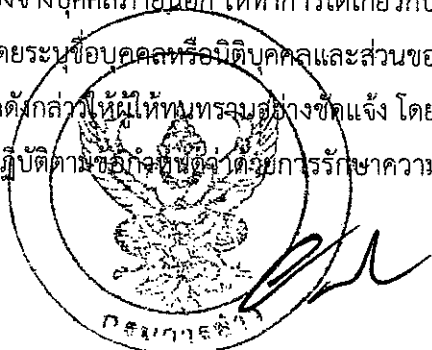 บุคคลภายนอก ให้ทำการใดเกี่ยวกับ
โดยระบุชื่อบุคคลหรือนิติบุคคลและส่วนขอ
ดังกล่าวให้ผู้ให้ทุนทราบอย่างชัดแจ้ง โดย
ฏิบัติตามข้อกำหนดว่าด้วยการรักษาความ
กรมการข้าว